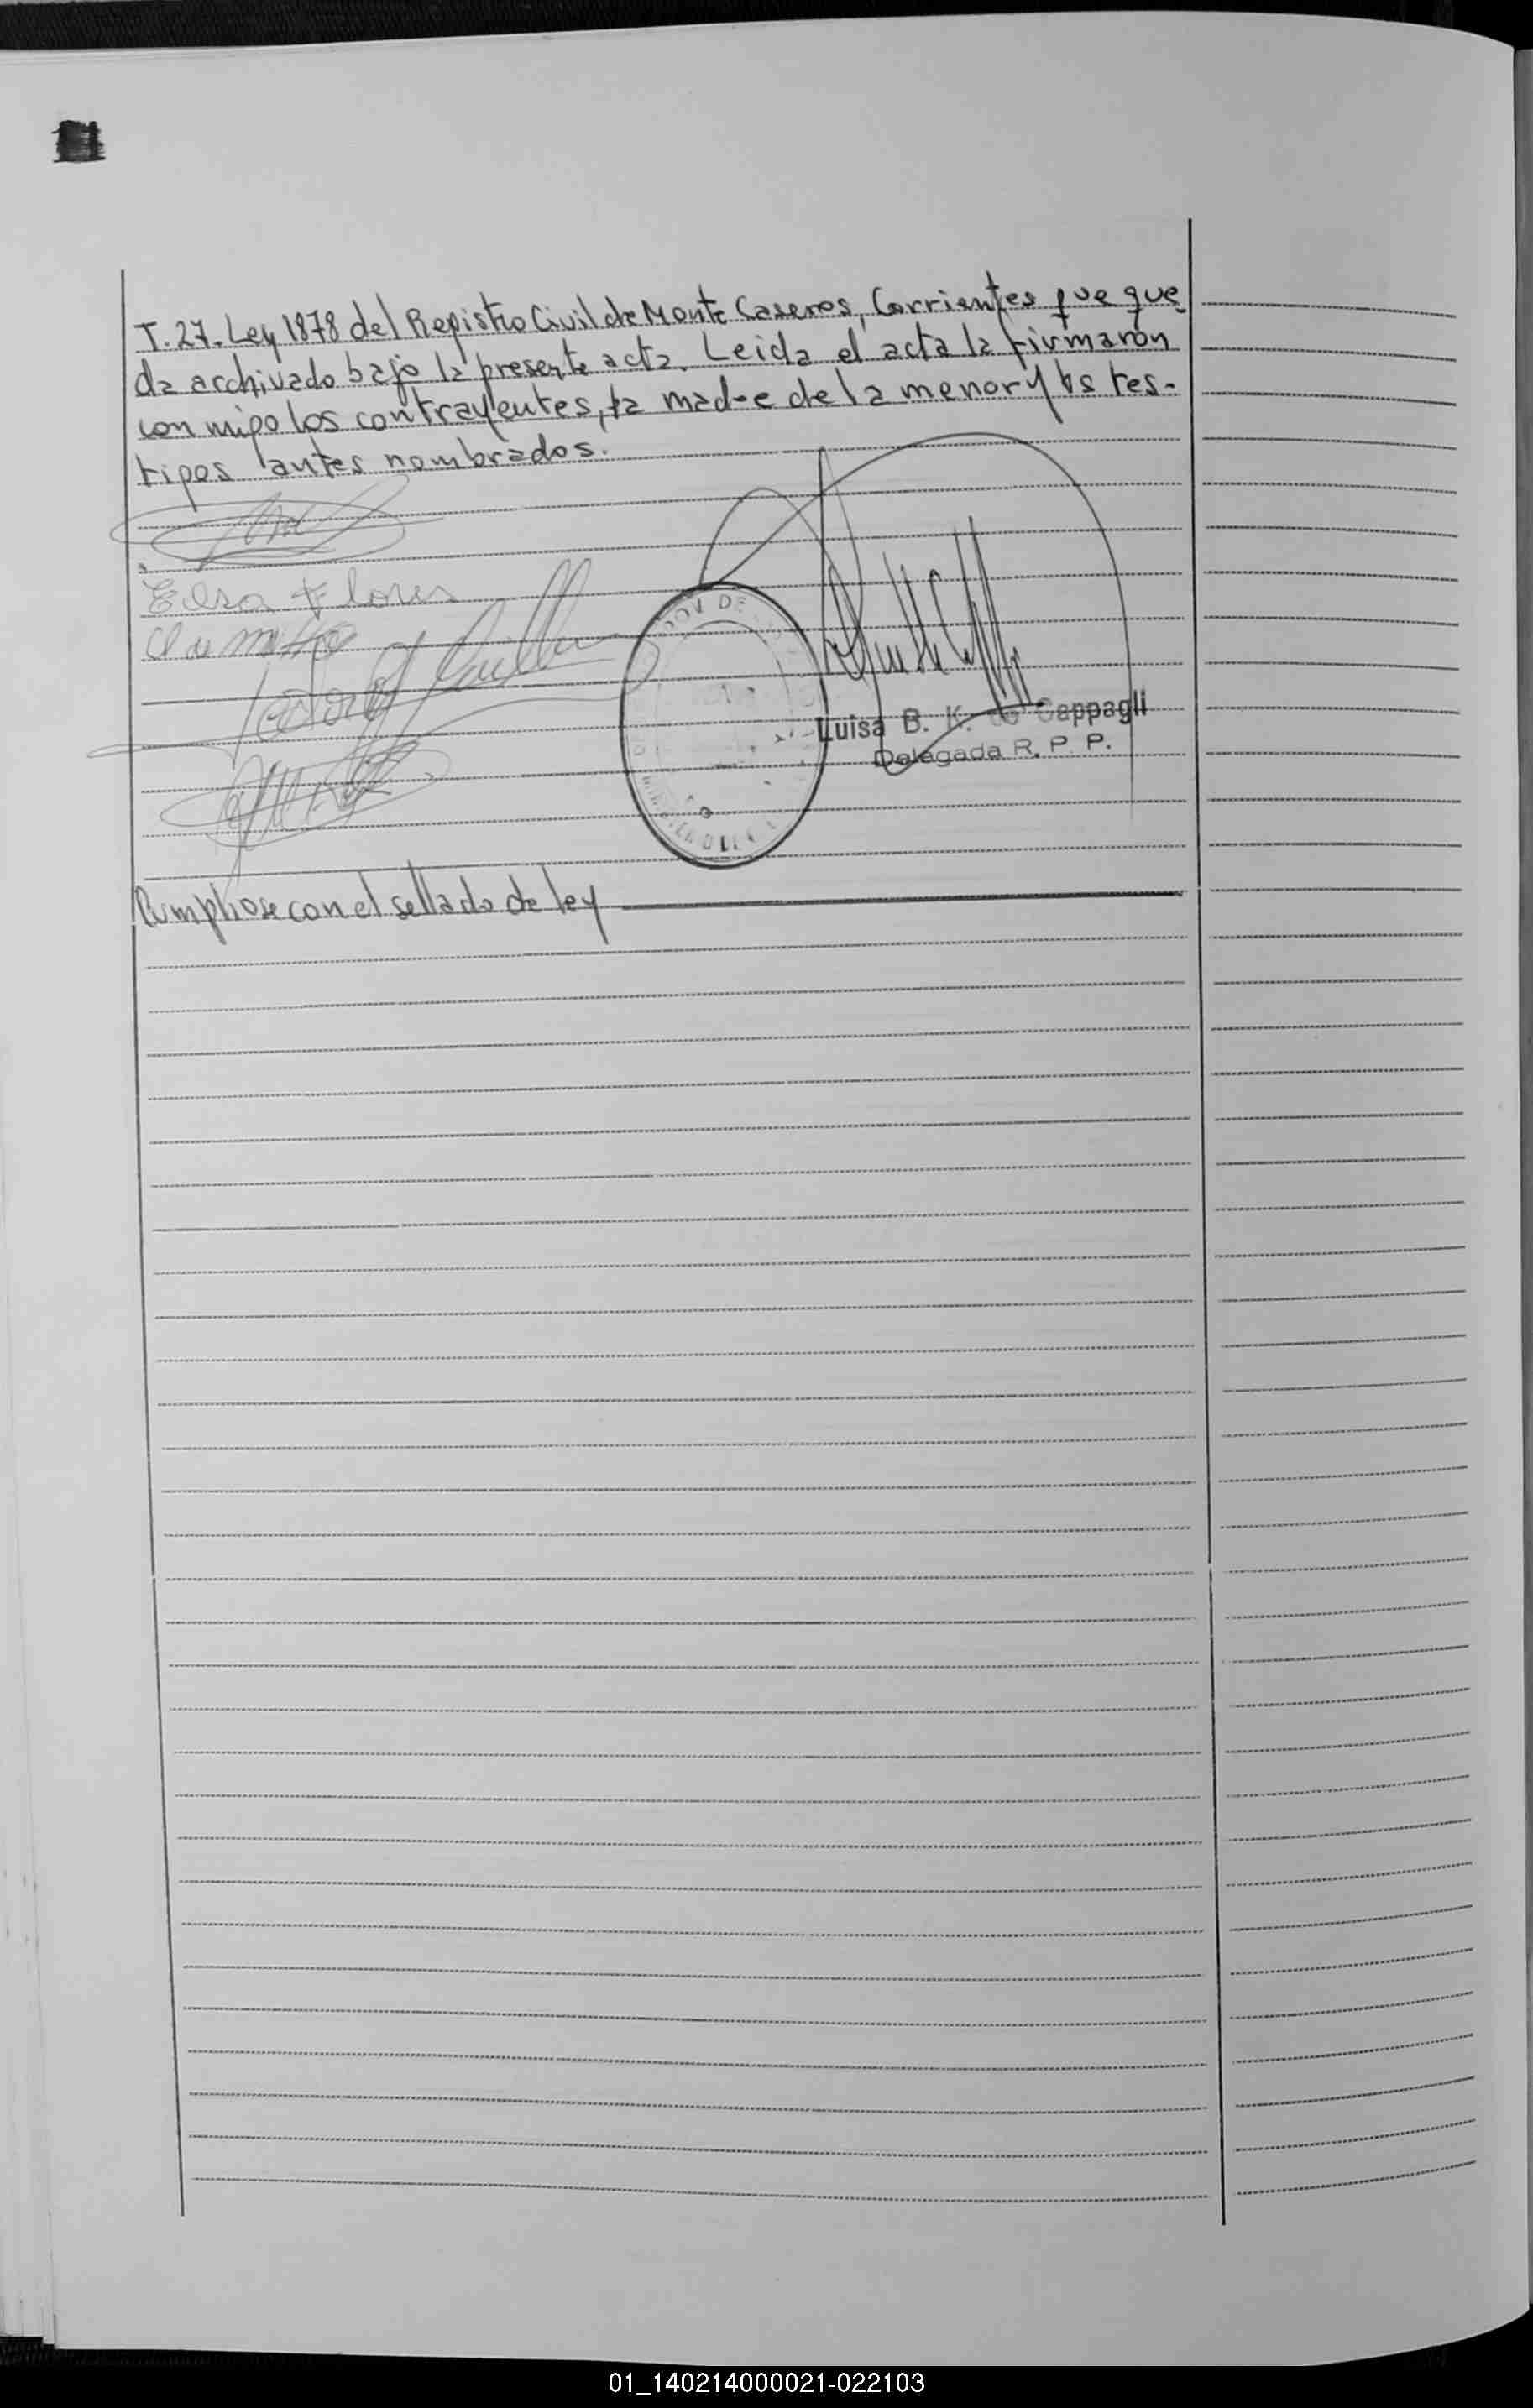 T. 27. Ley 1878 del Registro Civil de Monte Caseros, Corrientes que que
da archivado bajo la presente acta. Leida el acta la firmaron
con migo los contrayentes, la madre de la menor y los tes-
tigos antes nombrados.
Elsa Flores
DE
Luisa B. K. de Cappagli
Delegada R. P. P.
Cumpliose con el sellado de ley
01_140214000021-022103